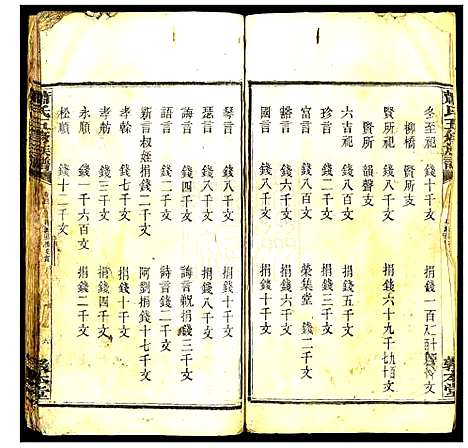 蕭氏五修族譜
冬至祀 錢十千文 捐錢一百二十千文
柳橋 賢所支
賢所祀 錢八千文 捐錢六十九千九百文
賢所 韻聲支
六吉祀 錢八千文 捐錢五千文
珍言 錢二千文 捐錢三千文
富言 錢二千文 榮集堂 捐錢二千文
豁言 錢六千文 捐錢十千文
國言 錢八千文 捐錢六千文
琴言 錢八千文 捐錢二千文
瑟言 錢八千文 捐錢八千文
誨言 錢四千文 誨言親捐錢三千文
語言 錢二千文 詩言錢二千文
新言叔姪捐錢二千文 阿劉捐錢三千文
孝幹 錢七千文 捐錢十千文
孝舫 錢三千文 捐錢四千文
永順 錢一千六百文 捐錢二千文
松順 錢十二千文
敦本堂